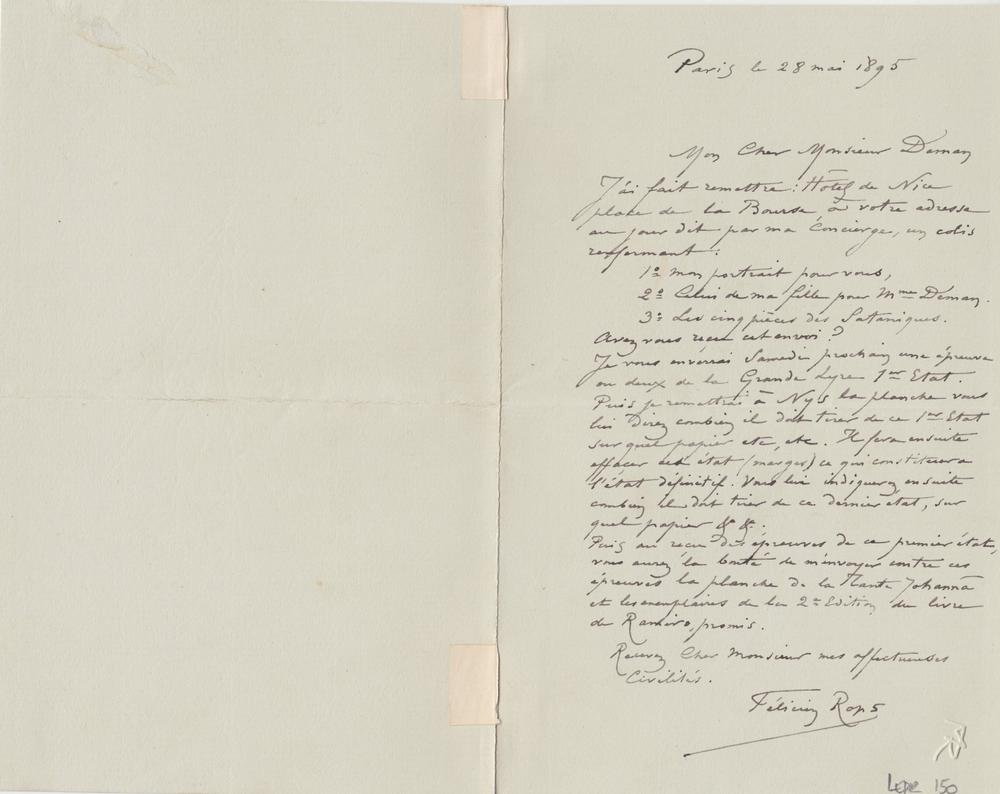 Paris le 28 mai 1895
Mon Cher Monsieur Deman
J'ai fait remettre : Hôtel de Nice
place de la Bourse, à votre adresse
au jour dit par ma Concierge, un colis
renfermant :
1º mon portrait pour vous,
2º Celui de ma fille pour Mme Deman.
3º Les cinq pièces des Sataniques.
Avez vous recu cet envoi ?
Je vous enverrai Samedi prochain une épreuve
ou deux de la Grande Lyre 1er Etat.
Puis je remettrai à Nys la planche vous
lui Direz combien il doit tirer de ce 1er Etat
sur quel papier etc, etc. Il fera ensuite
effacer cet état (marges) ce qui constituera
l'état définitif. Vous lui indiquerez ensuite
combien il doit tirer de ce dernier état, sur
quel papier & &.
Puis au recu des épreuves de ce premier état,
vous aurez la bonté de m'envoyer contre ces
épreuves la planche de la Tante Johanna
et les exemplaires de la 2e Edition du livre
de Ramiro, promis.
Recevez Cher Monsieur mes affectueuses
Civilités.
Félicien Rops
LEpr 150